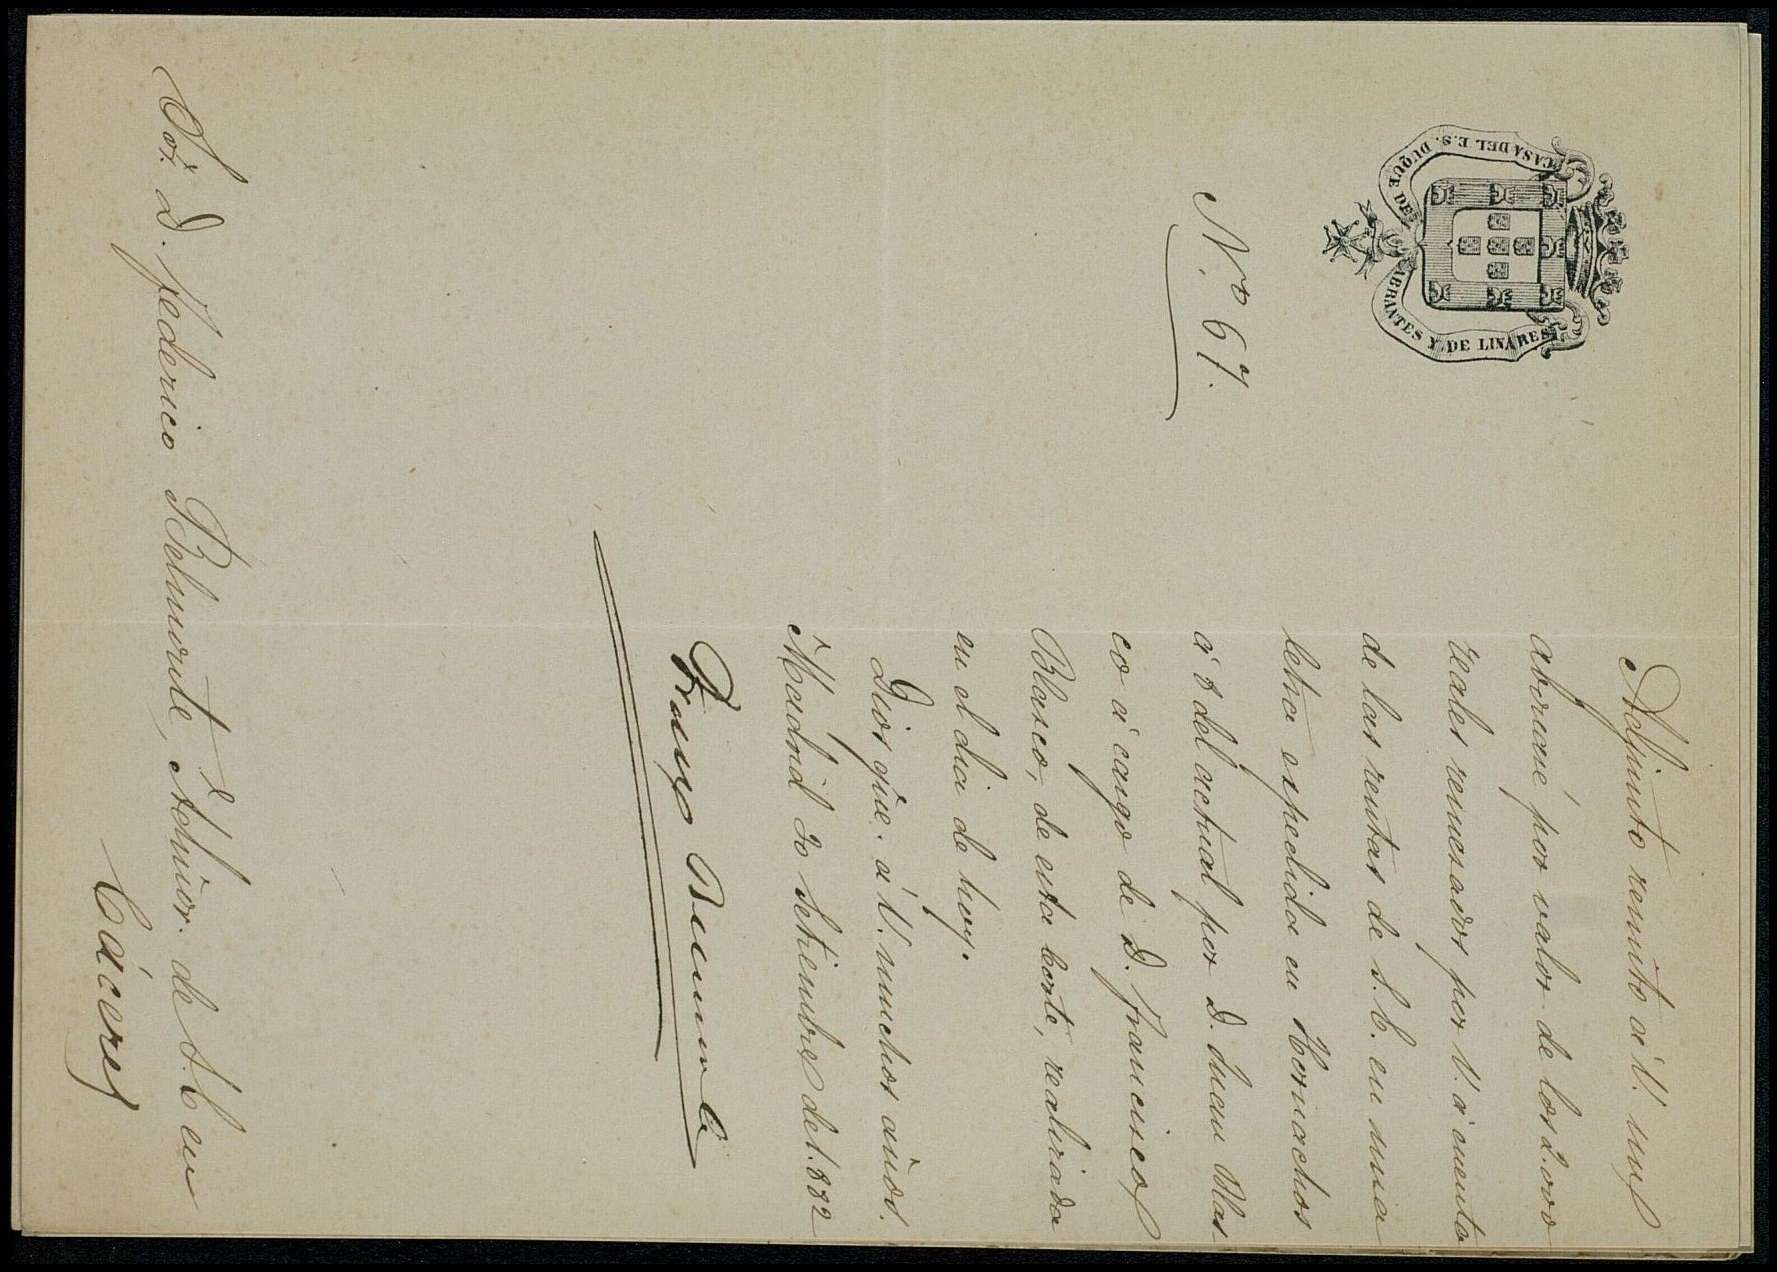 CASA DEL E.S. DUQUE DE ABRANTES Y DE LINARES
Nº 67.
Adjunto remito á V. un
abonaré por valor de los 2.000
reales remesados por V. á cuenta
de las rentas de S.E. en una
letra expedida en Hornachos
á 8 del actual por D. Juan Blas
co á cargo de D. Francisco
Blasco, de esta Corte, realizada
en el dia de hoy.
Dios gue. á V. muchos años.
Madrid 30 Setiembre de 1.882
Sor. D. Federico Belmonte, Admor. de S.E. en
Cáceres